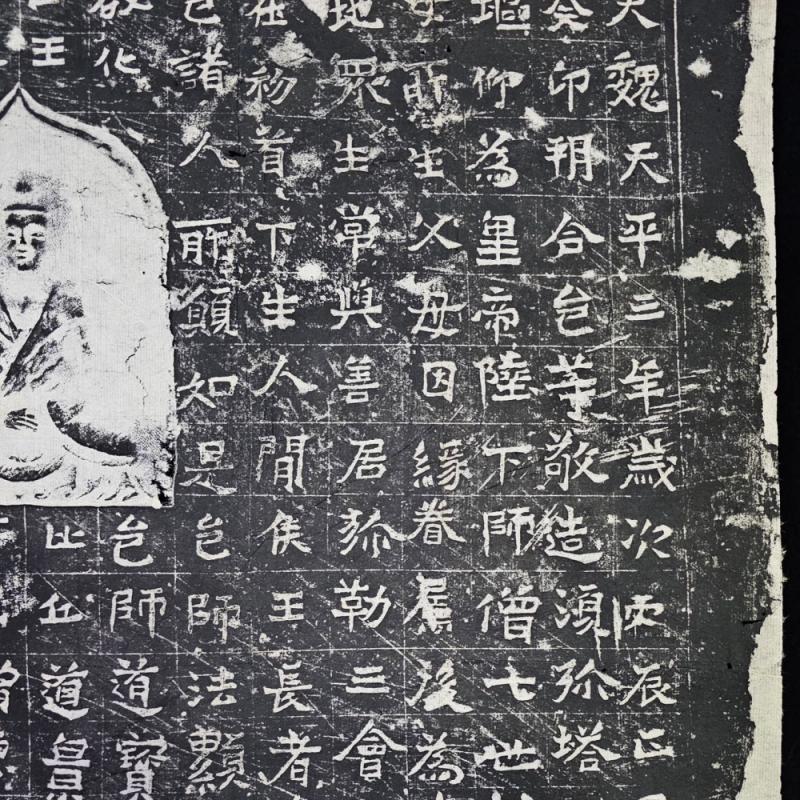 大魏天平三年歲次丙辰正
卯朔合邑等敬造須弥塔
塸仰為皇帝陛下師僧七世
所生父母因緣眷屬後為
地眾生常與善居弥勒三會
在初首下生人間侯王長者
邑諸人所願如是邑師法顯
化邑師道寶
王比丘道